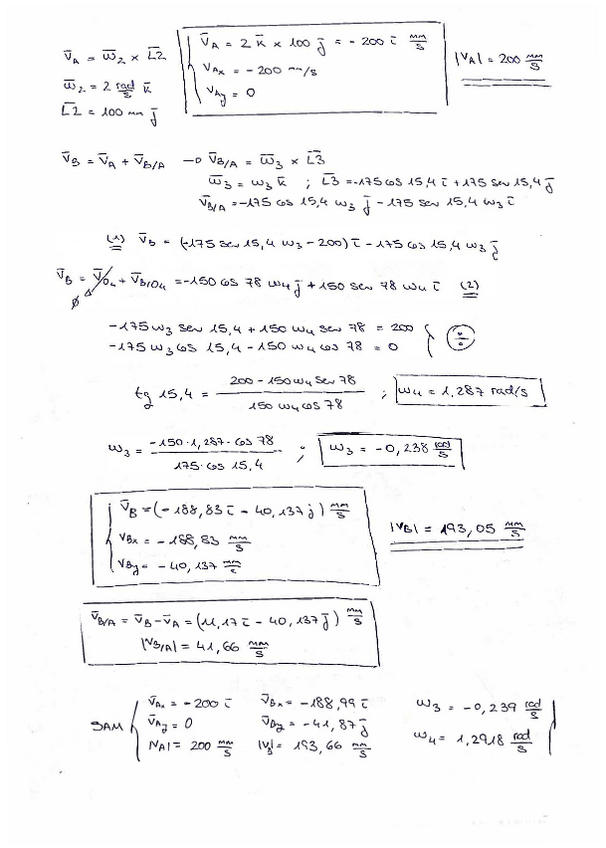 V̄A = ω̄2 × L̄2
ω̄2 = 2 rad/s k̄
L̄2 = 100 mm j̄
V̄A = 2 k̄ × 100 j̄ = -200 ī mm/s
VAx = -200 mm/s
VAy = 0
|VA| = 200 mm/s
V̄B = V̄A + V̄B/A → V̄B/A = ω̄3 × L̄3
ω̄3 = ω3 k̄ ; L̄3 = -175 cos 15,4 ī + 175 sen 15,4 j̄
V̄B/A = -175 cos 15,4 ω3 j̄ - 175 sen 15,4 ω3 ī
(1) V̄B = (-175 sen 15,4 ω3 - 200) ī - 175 cos 15,4 ω3 j̄
V̄B = V̄O4 + V̄B/O4 = -150 cos 78 ω4 j̄ + 150 sen 78 ω4 ī (2)
ø
-175 ω3 sen 15,4 + 150 ω4 sen 78 = 200
-175 ω3 cos 15,4 - 150 ω4 cos 78 = 0
÷
tg 15,4 = (200 - 150 ω4 sen 78) / (150 ω4 cos 78) ; ω4 = 1,287 rad/s
ω3 = (-150·1,287·cos 78) / (175·cos 15,4) ; ω3 = -0,238 rad/s
V̄B = (-188,83 ī - 40,137 j̄) mm/s
VBx = -188,83 mm/s
VBy = -40,137 mm/s
|VB| = 193,05 mm/s
V̄B/A = V̄B - V̄A = (11,17 ī - 40,137 j̄) mm/s
|VB/A| = 41,66 mm/s
SAM
V̄Ax = -200 ī V̄Bx = -188,99 ī ω3 = -0,239 rad/s
V̄Ay = 0 V̄By = -41,87 j̄ ω4 = 1,2918 rad/s
|VA| = 200 mm/s |VB| = 193,66 mm/s